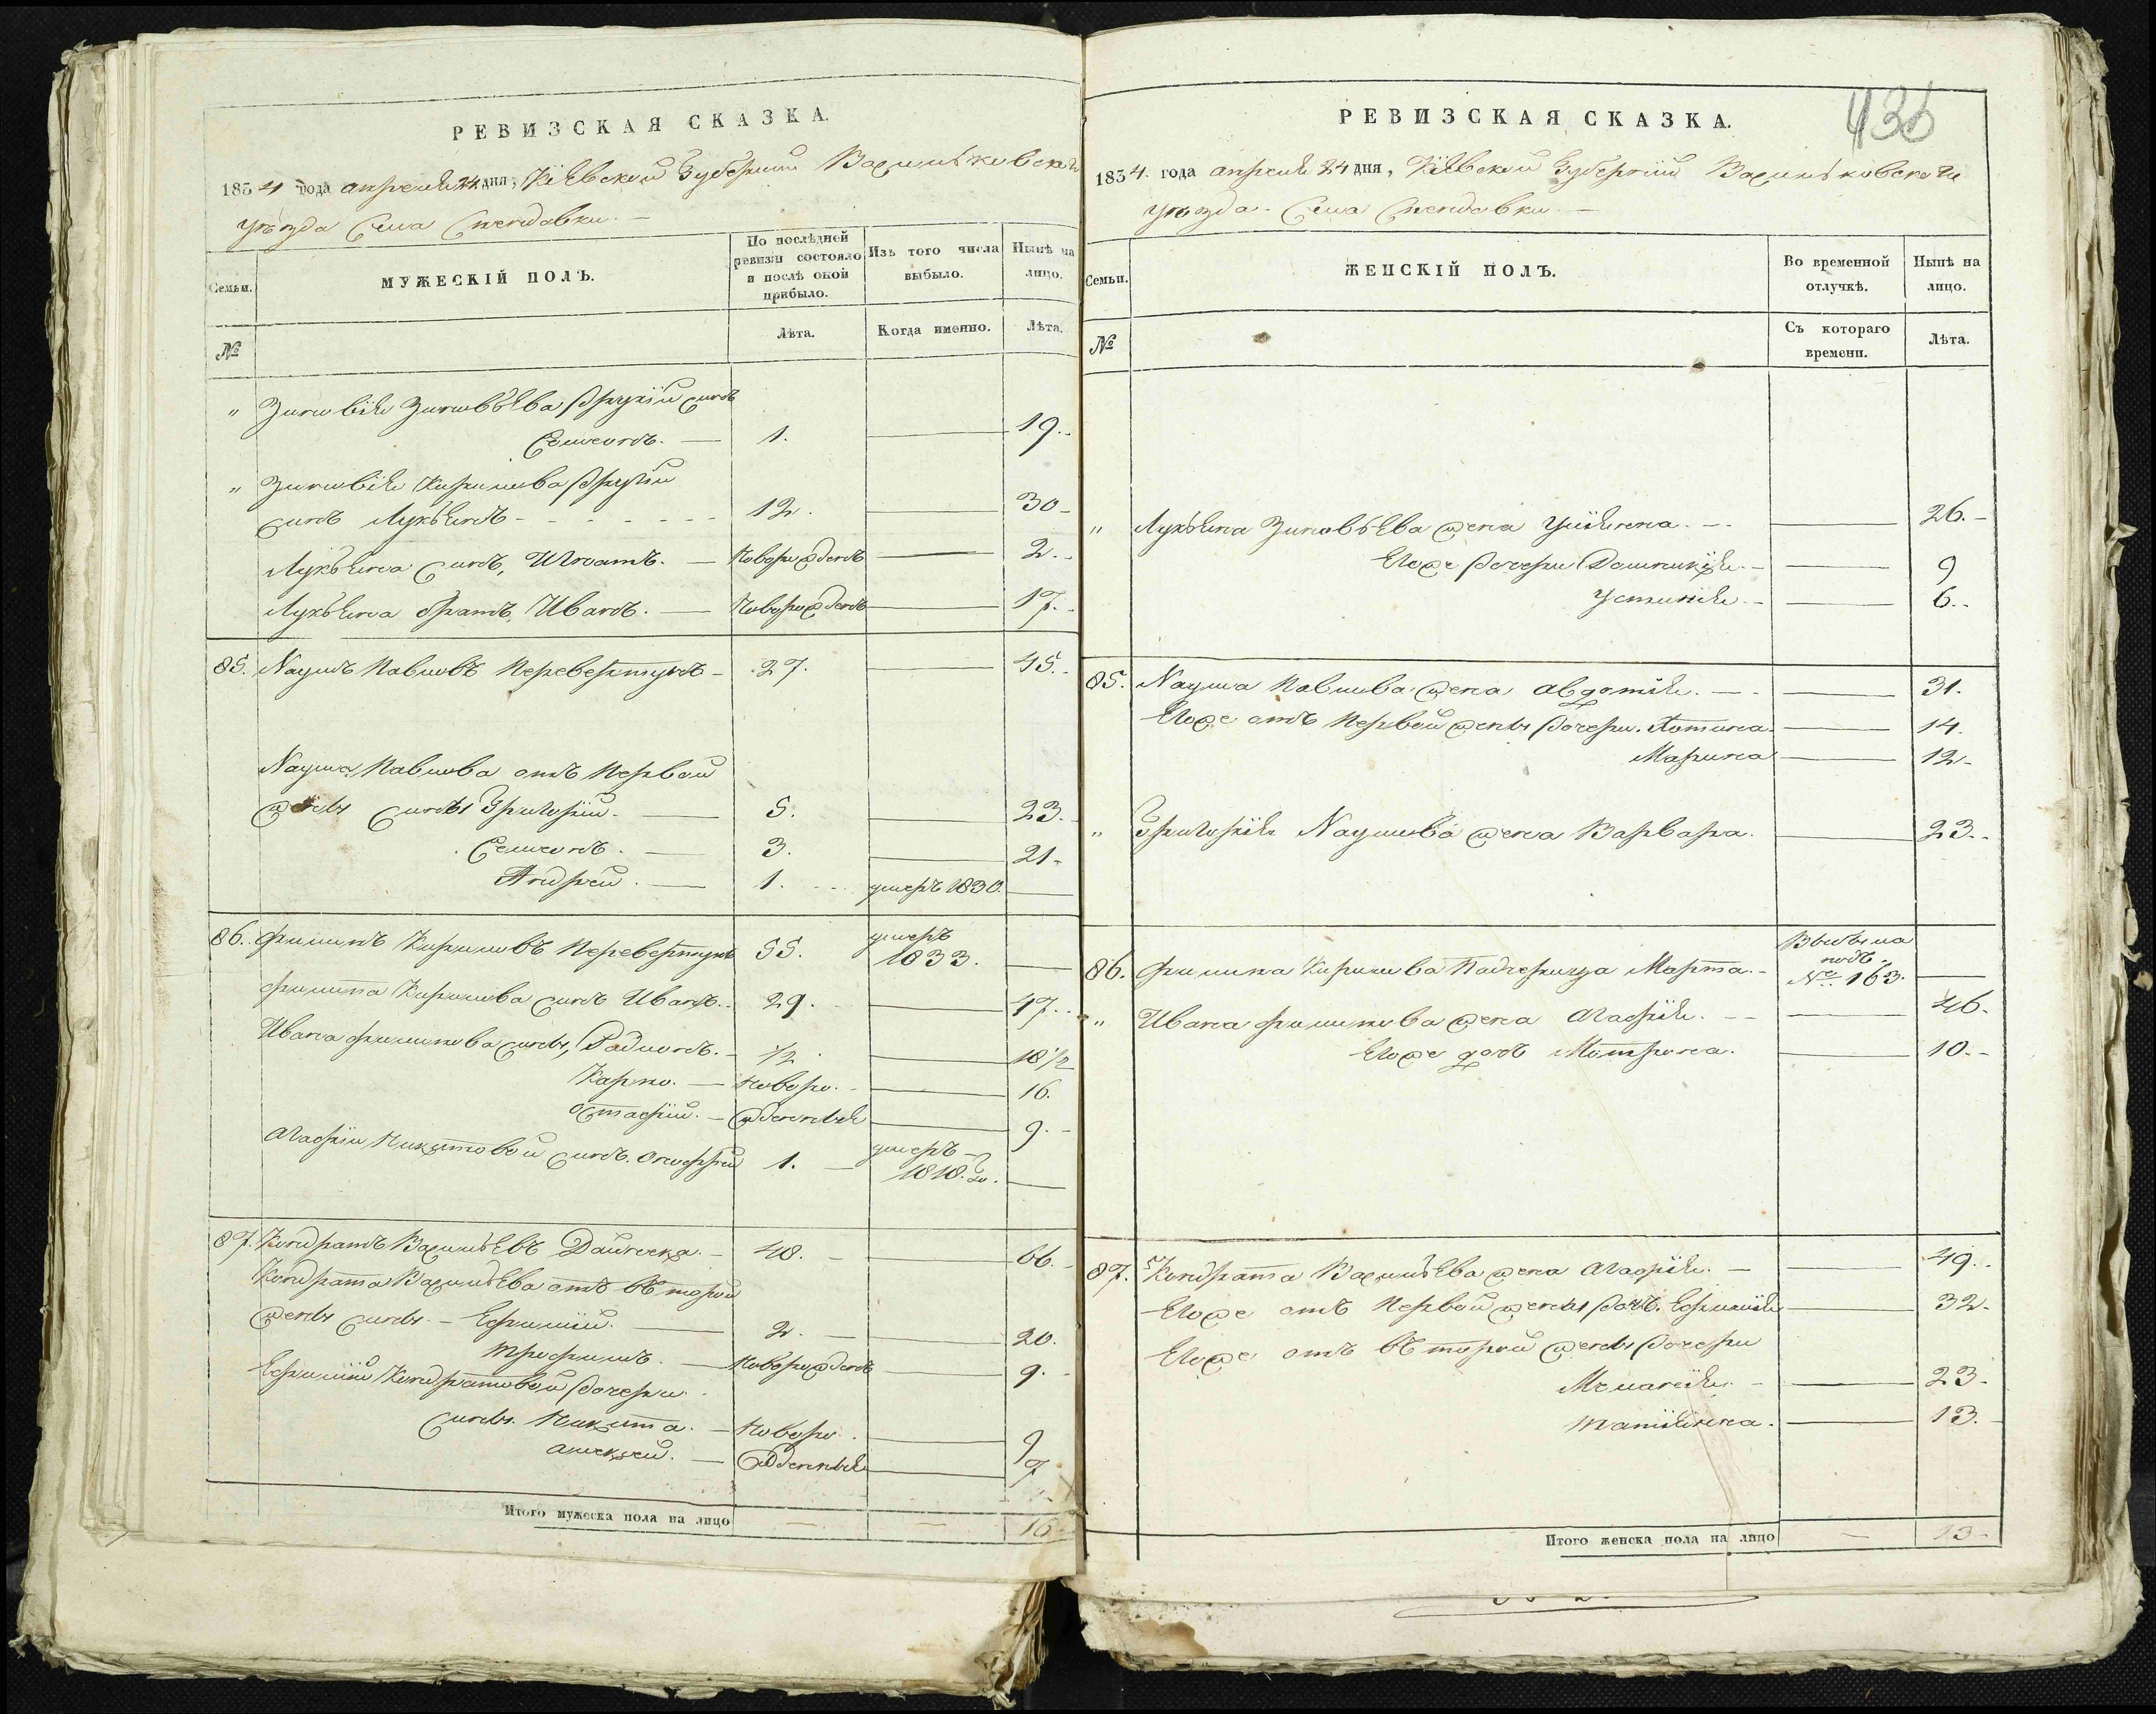 РЕВИЗСКАЯ СКАЗКА.
1834 года апреля 24 дня, Кіевской Губерніи Васильковскаго
уѣзда Села
Семьи.
МУЖЕСКІЙ ПОЛЪ.
По послѣдней ревизіи состояло и послѣ оной прибыло.
Изъ того числа выбыло.
Нынѣ на лицо.
№
Лѣта.
Когда именно.
Лѣта.
" Зиновія Зиновьева другій сынъ
Семенъ. — 1. — 19.
" Зиновія Кирилова другій
сынъ Лукьянъ - 12. — 30
Лукьяна сынъ, Игнатъ. — Новорожденъ — 2.
Лукьяна братъ, Иванъ. — Новорожденъ — 17.
85. Наумъ Павловъ Перевертунъ - 27. — 45.
Наума Павлова отъ первой
жены сыны Григорій. — 5. — 23.
Семенъ. — 3. — 21
Андрей. — 1. умеръ 1830. —
86. Филипъ Кириловъ Перевертунъ 55. умеръ 1833. —
Филипа Кирилова сынъ Иванъ. 29. — 47.
Ивана Филипова сыны, Радионъ. ½ — 18½
Карпо. — Новоро- — 16.
Остафій. — жденныя — 9.
Агафіи Никитовой сынъ. Онофрей 1. — умеръ 1818. г. —
87. Кондратъ Васильевъ 48. — 66.
Кондрата Васильева отъ второй
жены сыны - Ефимій. — 2. — 20.
Трофимъ. — Новорожденъ — 9.
Ефиміи Кондратовой дочери
сыны. Никита. — Новоро- — 9
Алексей. — жденныя — 7
Итого мужеска пола на лицо — — 16
436
РЕВИЗСКАЯ СКАЗКА.
1834 года апреля 24 дня, Кіевской Губерніи Васильковскаго
уѣзда. Села
Семьи.
ЖЕНСКІЙ ПОЛЪ.
Во временной отлучкѣ.
Нынѣ на лицо.
№
Съ котораго времени.
Лѣта.
" Лукьяна Зиновьева жена Уліяна. — 26.
Егоже дочери — 9
Устинія. — 6.
85. Наума Павлова жена Авдотія. — 31.
Егоже отъ первой жены дочери. — 14.
Марина — 12
" Григорія Наумова жена Варвара. — 23.
86. Филипа Кирилова падчерица Марта. - Выбыла подъ № 163. —
" Ивана Филипова жена Агафія. — 46.
Егоже дочь Мотрона. — 10.
87. Кондрата Васильева жена Агафія. — 49.
Егоже отъ первой жены дочь. Ефимія — 32
Егоже отъ второй жены дочери
Меланія. — 23
Татіянна. — 13.
Итого женска пола на лицо — 13